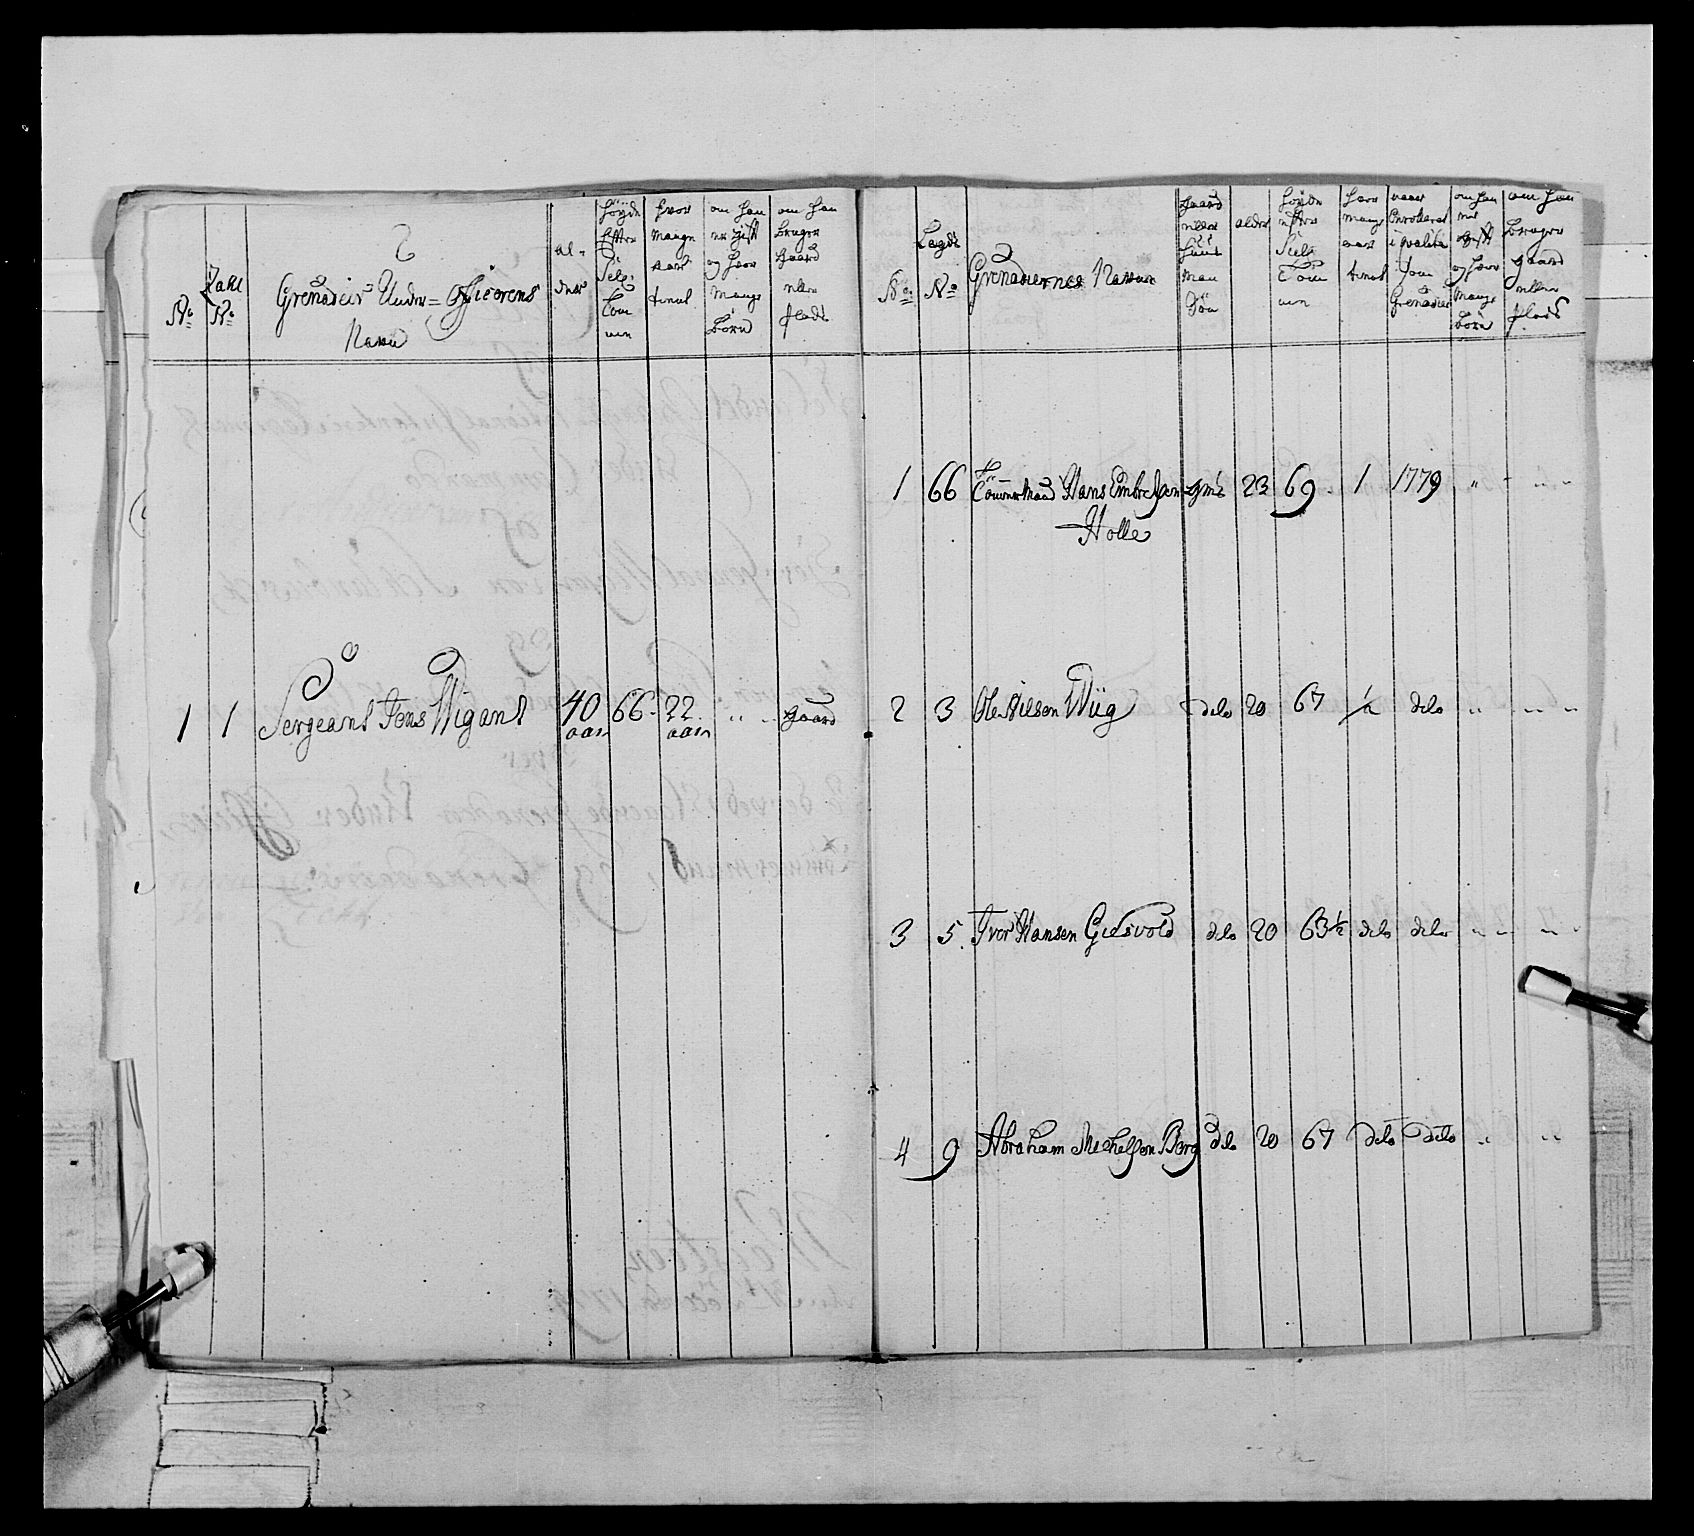 No
Tahl No
Grenadeir Under=Officerens Navn
al-
der
høyde
Efter
Siels.
Tom
men
hvor
mange
aar
tient
om han
er gift
og hvor
mange
børn
om han
bruger
gaard
eller
plads
1 1 Sergeant Jens Wigant 40 aar 66 22 aar " " gaard
No
Legds No
Grenadernes Navn
gaard
eller
huus
man
Søn
alder
høyde
efter
Siels
Tom
men
hvor
mange
aar
tient
naar
Enrolleret
i qvalite
som
Grenadeer
om han
er
gift
og hvor
mange
børn
om han
bruger
gaard
eller
plads
1 66 Tømermand Hans Embretsen gms 23 69 1 1779 " " " "
Holle
2 3 Ole Nilsen Wiig dito 20 67 ½ dito " " " "
3 5. Iver Hansen Gidsvold dito 20 63½ dito dito " " " "
4 9 Abraham Michelsen Berg dito 20 67 dito dito " " "